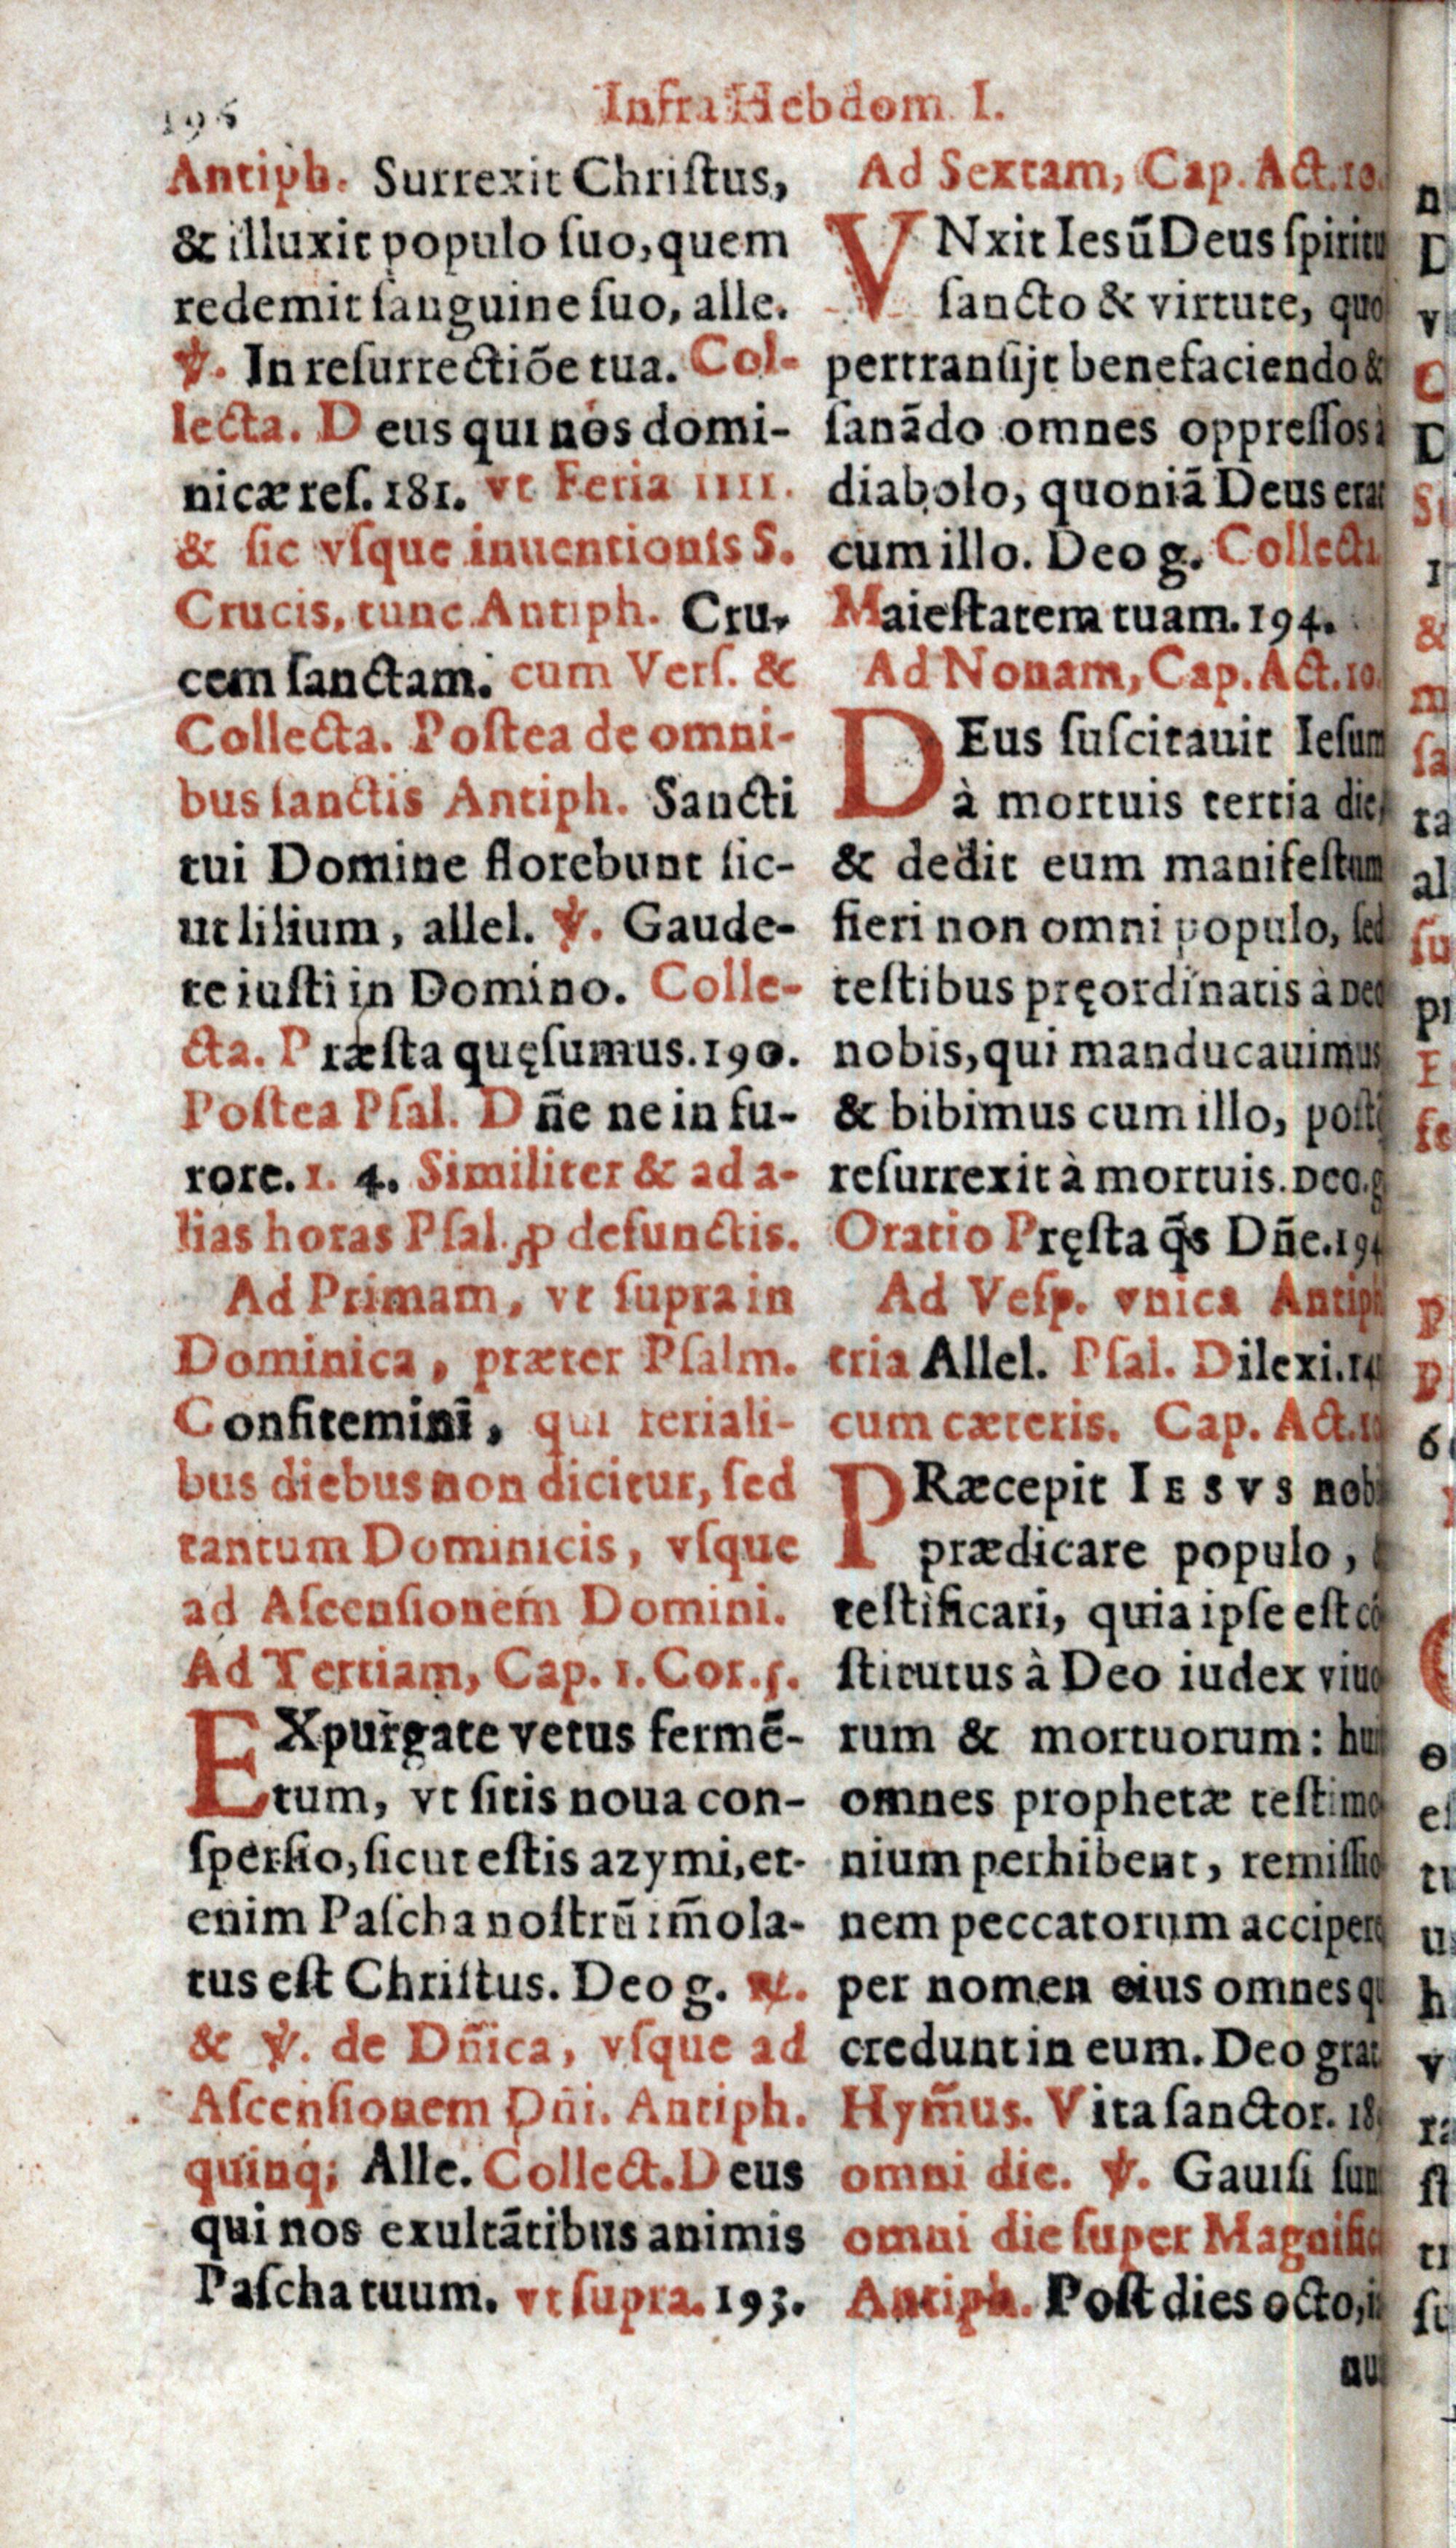 196
Infra Hebdom. I.
Antiph. Surrexit Chriſtus,
& illuxit populo ſuo, quem
redemit ſanguine ſuo, alle.
℣. In reſurrectiõe tua. Col-
lecta. Deus qui nos domi-
nicæ reſ. 181. vt Feria IIII.
& ſic vſque inuentionis S.
Crucis, tunc Antiph. Cru-
cem ſanctam. cum Verſ. &
Collecta. Poſtea de omni-
bus ſanctis Antiph. Sancti
tui Domine florebunt ſic-
ut lilium, allel. ℣. Gaude-
te iuſti in Domino. Colle-
cta. Præſta quęſumus. 190.
Poſtea Pſal. Dñe ne in fu-
rore. 1. 4. Similiter & ad a-
lias horas Pſal. ꝓ defunctis.
Ad Primam, vt ſupra in
Dominica, præter Pſalm.
Confitemini, qui ferialı-
bus diebus non dicitur, ſed
tantum Dominicis, vſque
ad Aſcenſionem Domini.
Ad Tertiam, Cap. 1. Cor. 5.
EXpurgate vetus fermẽ-
tum, vt ſitis noua con-
ſperſio, ſicut eſtis azymi, et-
enim Paſcha noſtrũ im̃ola-
tus eſt Chriſtus. Deo g. ℟.
& ℣. de Dñica, vſque ad
Aſcenſionem Dñi. Antiph.
quinq; Alle. Collect. Deus
qui nos exultãtibus animis
Paſcha tuum. vt ſupra. 193.
Ad Sextam, Cap. Act. 10.
VNxit Iesũ Deus ſpiritu
ſancto & virtute, quo
pertranſijt benefaciendo &
ſanãdo omnes oppreſſos à
diabolo, quoniã Deus erat
cum illo. Deo g. Collecta
Maieſtatem tuam. 194.
Ad Nonam, Cap. Act. 10.
DEus ſuſcitauit Ieſum
à mortuis tertia die,
& dedit eum manifeſtum
fieri non omni populo, ſed
teſtibus pręordinatis à Deo
nobis, qui manducauimus
& bibimus cum illo, poſtq̃
reſurrexit à mortuis. Deo. g
Oratio Pręſta q̃s Dñe. 194
Ad Veſp. vnica Antiph
tria Allel. Pſal. Dilexi.
cum cæteris. Cap. Act.
PRæcepit IESVS nobis
prædicare populo,
teſtificari, quia ipſe eſt cõ
ſtitutus à Deo iudex viuo
rum & mortuorum: huic
omnes prophetæ teſtimo
nium perhibent, remiſſio
nem peccatorum accipere
per nomen eius omnes qui
credunt in eum. Deo grat
Hym̃us. Vita ſanctor.
omni die. ℣. Gauiſi ſunt
omni die ſuper Magnific
Antiph. Poſt dies octo,